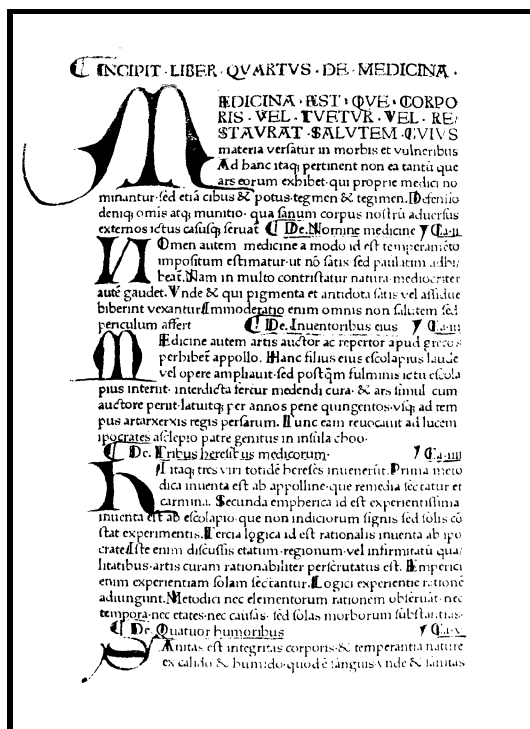 INCIPIT · LIBER · QVARTVS · DE · MEDICINA ·
MEDICINA · EST · QVE · CORPO
RIS · VEL · TVETVR · VEL · RE/
STAVRAT · SALVTEM · CVIVS
materia versatur in morbis et vulneribus
Ad hanc itaq; pertinent non ea tantū que
ars eorum exhibet · qui proprie medici no
minantur · sed etiā cibus & potus · tegmen & tegimen. Defensio
deniq; omis atq; munitio · qua sanum corpus nostrū aduersus
externos ictus casusq; seruat De Nomine medicine Ca · ii
NOmen autem medicine a modo id est temperamēto
impositum estimatur · ut nō satis sed paulatim adhi/
beat. Nam in multo contristatur natura · mediocriter
autē gaudet. Vnde & qui pigmenta et antidota satis vel assidue
biberint vexantur Immoderatio enim omnis non salutem sed
periculum affert De Inuentoribus eius Ca · iii
MEdicine autem artis auctor ac repertor apud grecos
perhibet appollo. Hanc filius eius escolapius laude
vel opere ampliauit · sed postq̄m fulminis ictu escola
pius interiit · interdicta fertur medendi cura · & ars simul cum
auctore periit · latuitq; per annos pene quingentos · vsq; ad tem
pus artarxerxis regis persarum. Tunc eam reuocauit ad lucem
ipocrates asclepio patre genitus in insula choo ·
De Tribus heresibus medicorum · Ca · iiii
HI itaq; tres viri totidē hereses inuenerūt. Prima meto
dica inuenta est ab appolline · que remedia sectatur et
carmina. Secunda empherica id est experientissima
inuenta est ab escolapio · que non indiciorum signis sed solis cō
stat experimentis. Tercia logica id est rationalis inuenta ab ipo
crate Iste enim discussis etatum · regionum · vel infirmitatū qua/
litatibus · artis curam rationabiliter perscrutatus est. Emperici
enim experientiam solam sectantur. Logici experientie rationē
adiungunt. Metodici nec elementorum rationem obseruāt · nec
tempora · nec etates · nec causas · sed solas morborum substantias ·
De Quatuor humoribus Ca · v
SAnitas est integritas corporis · & temperantia nature
ex calido & humido · quod ē sanguis · vnde & sanitas